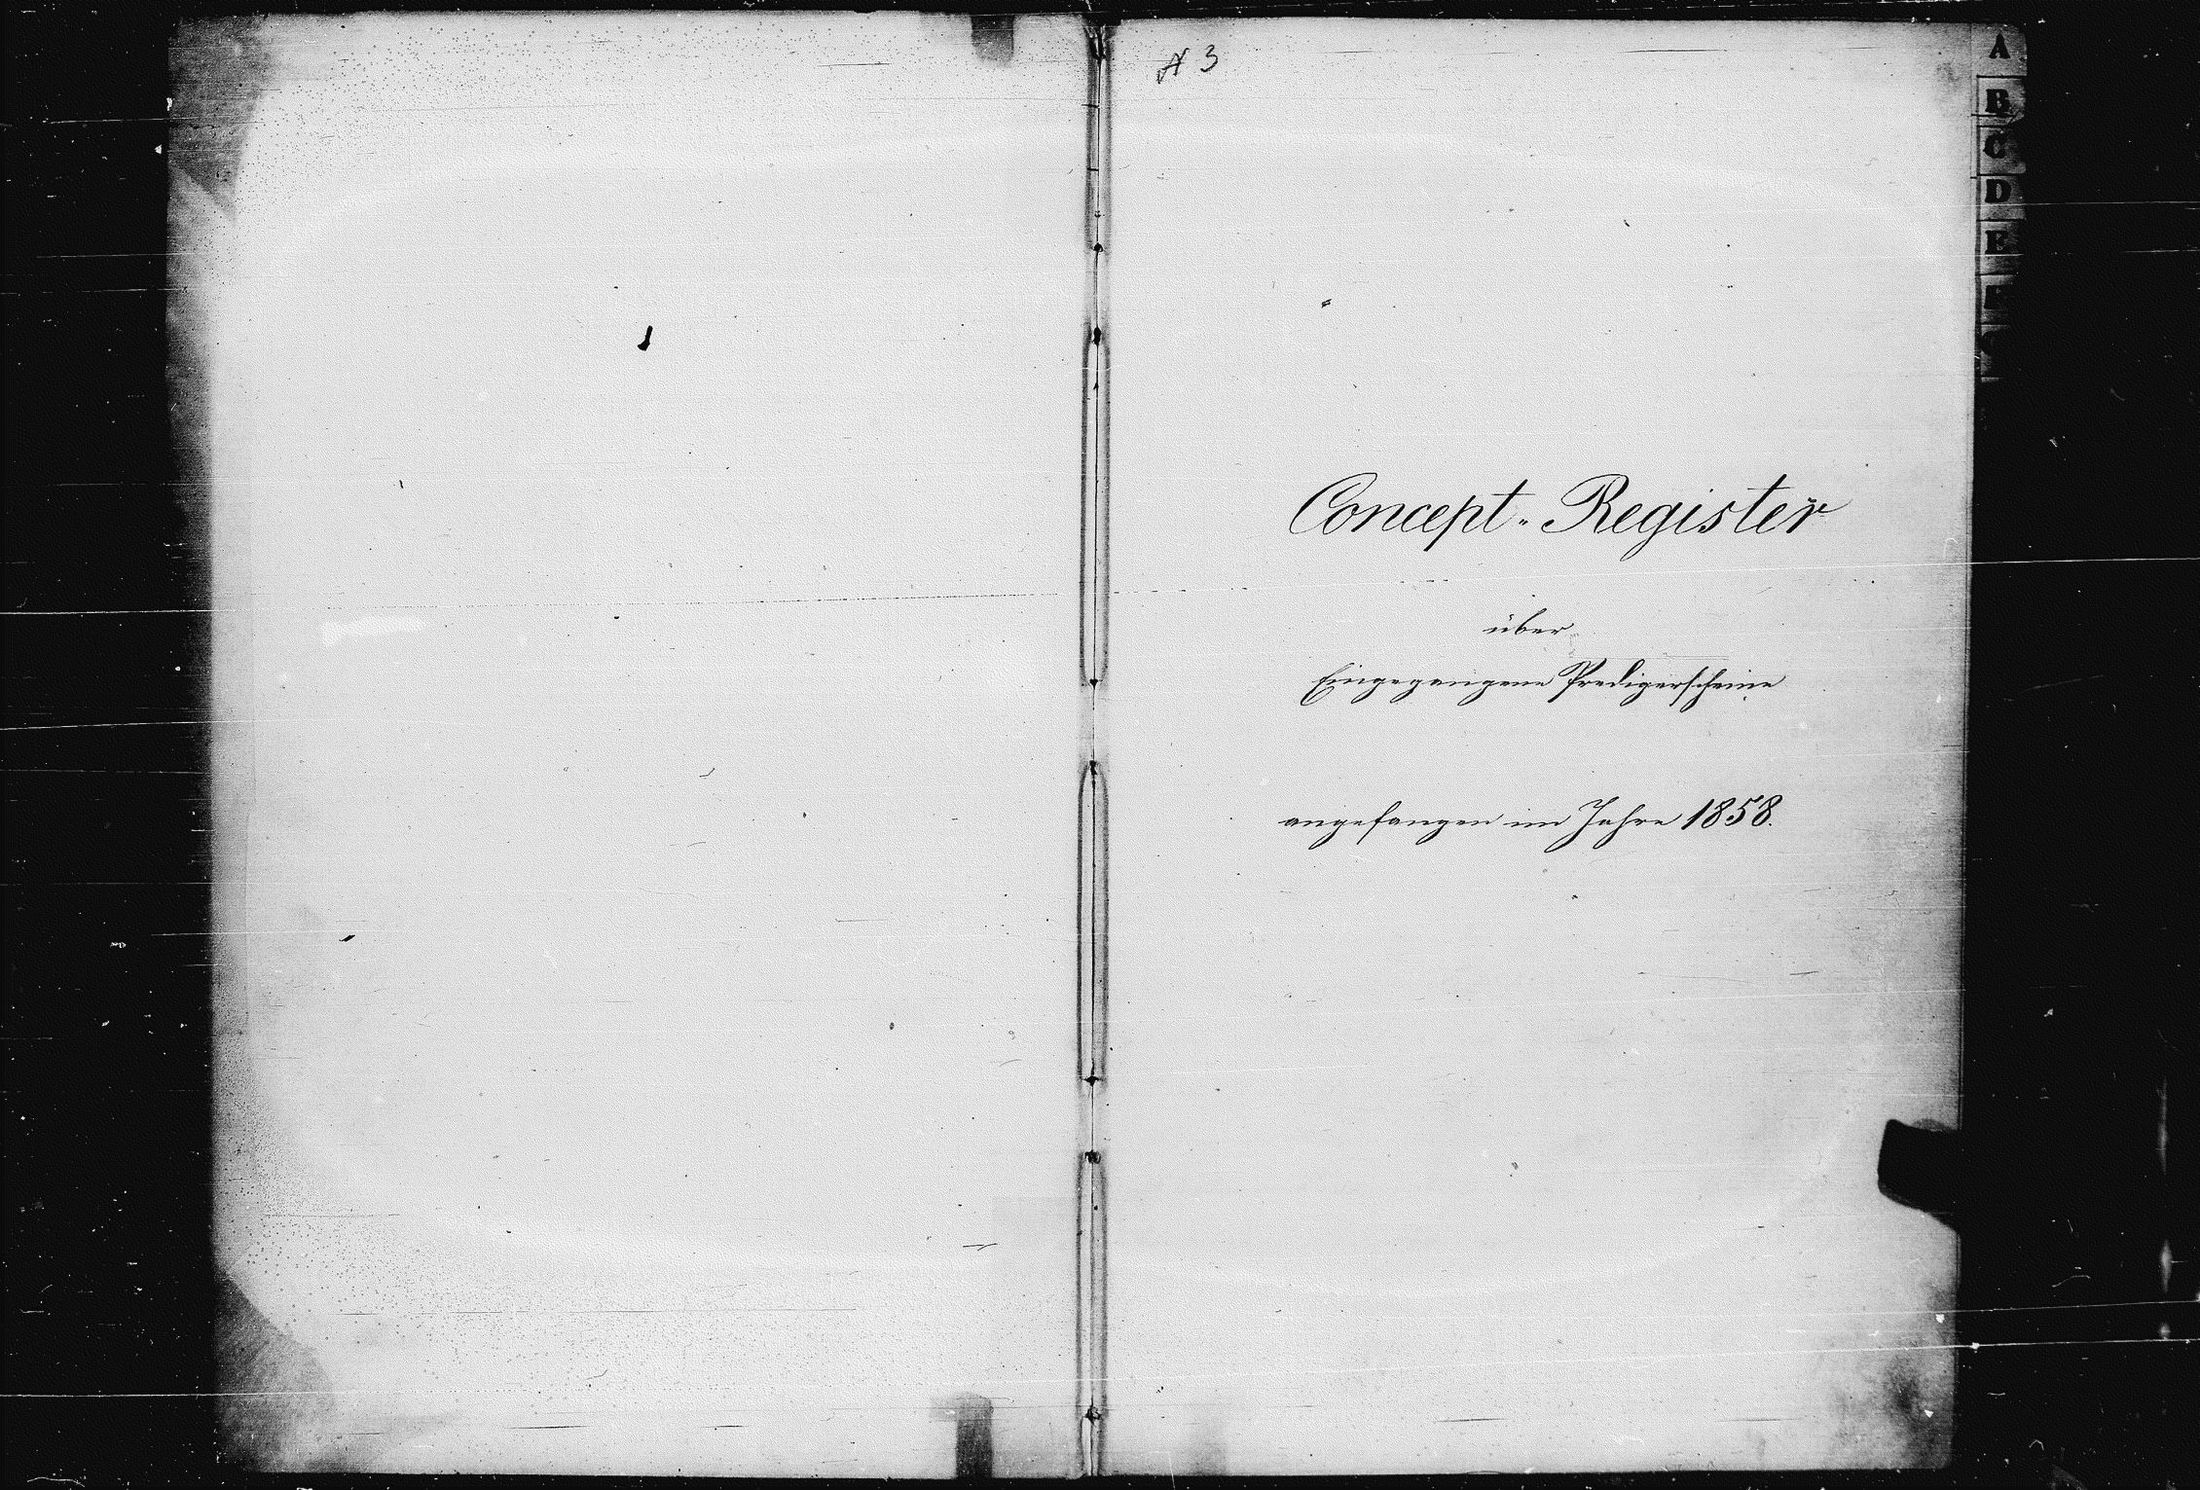 N 3
Concept-Register
über
Eingegangene Predigerscheine
angefangen im Jahre 1858.
A
B
C
D
E
F